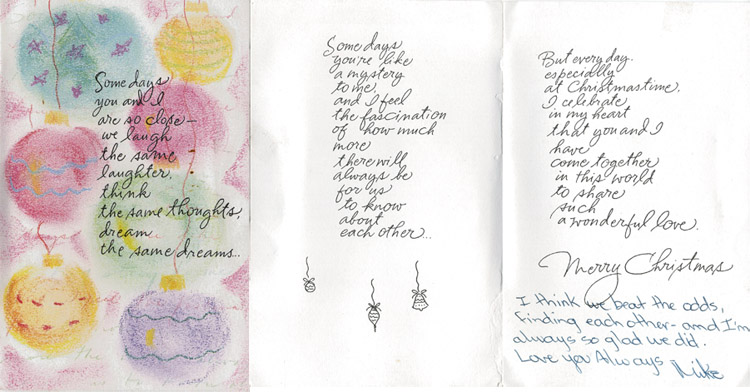 Some days
you and I
are so close—
we laugh
the same
laughter,
think
the same thoughts,
dream
the same dreams...
Some days
you're like
a mystery
to me,
and I feel
the fascination
of how much
more
there will
always be
for us
to know
about
each other...
But every day.
especially
at Christmastime,
I celebrate
in my heart
that you and I
have
come together
in this world
to share
such
a wonderful love.
Merry Christmas
I think we beat the odds,
finding each other- and I'm
always so glad we did.
Love you Always Mike